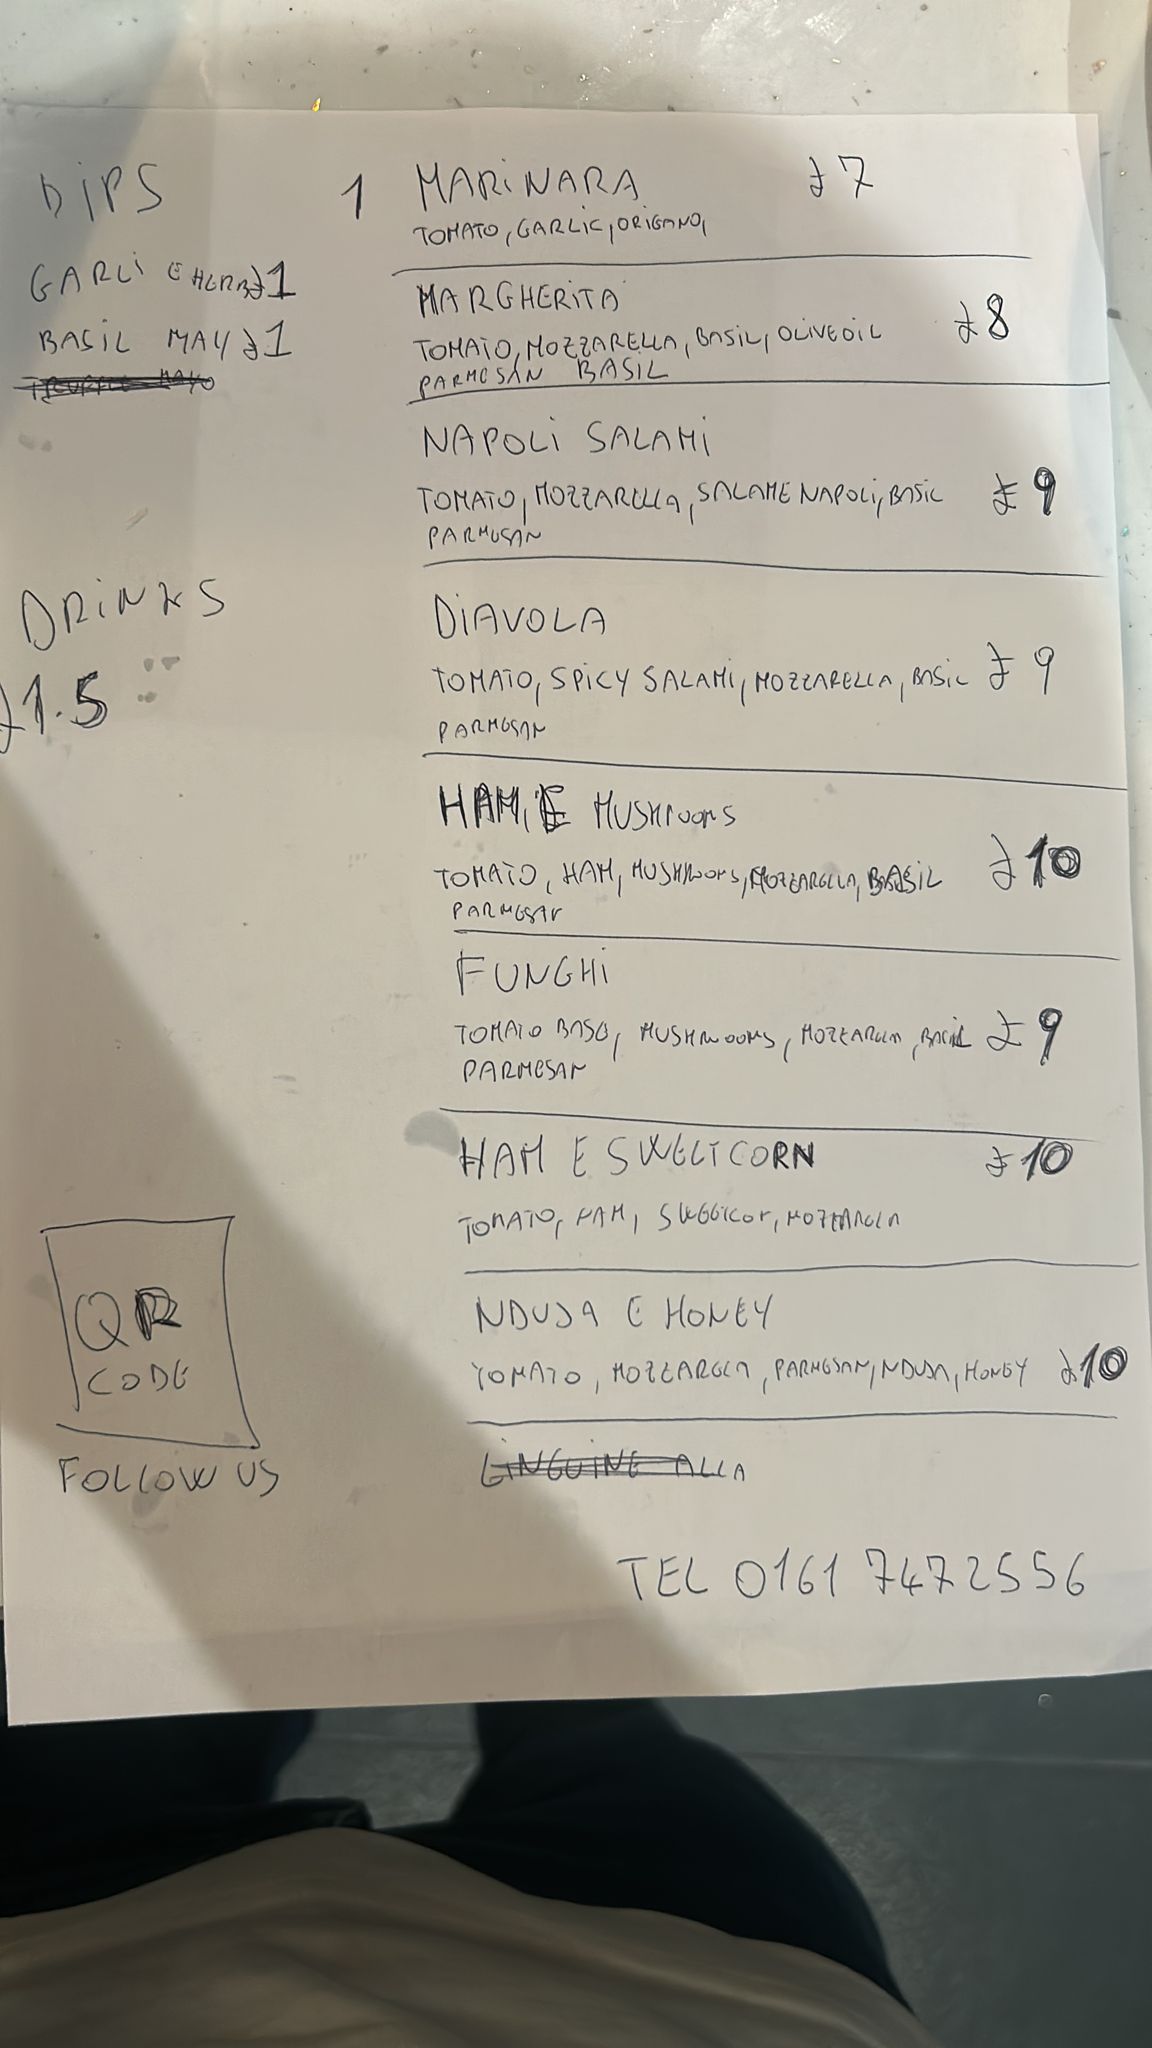 DIPS
GARLI E HERB £1
BASIL MAY £1
TRUFFLE MAYO
DRINKS
£1.5
QR
CODE
FOLLOW US
1 MARINARA £7
TOMATO, GARLIC, ORIGANO,
MARGHERITA
TOMATO, MOZZARELLA, BASIL, OLIVE OIL £8
PARMESAN BASIL
NAPOLI SALAMI
TOMATO, MOZZARELLA, SALAME NAPOLI, BASIL £9
PARMESAN
DIAVOLA
TOMATO, SPICY SALAMI, MOZZARELLA, BASIL £9
PARMESAN
HAM, E MUSHROOMS
TOMATO, HAM, MUSHROOMS, MOZZARELLA, BASIL £10
PARMESAN
FUNGHI
TOMATO BASE, MUSHROOMS, MOZZARELLA, BASIL £9
PARMESAN
HAM E SWEETCORN £10
TOMATO, HAM, SWEETCOR, MOZZARELLA
NDUJA E HONEY
TOMATO, MOZZARELLA, PARMESAN, NDUJA, HONEY £10
LINGUINE ALLA
TEL 0161 7472556